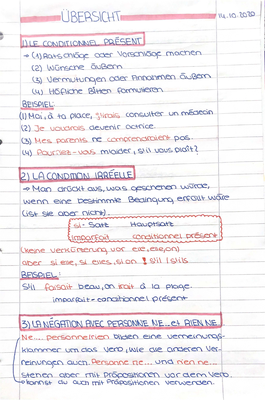 ÜBERSICHT
14.10.2020
1) LE CONDITIONNEL PRÉSENT
→ (1) Ratschläge oder Vorschläge machen
(2) Wünsche äußern
(3) Vermutungen oder Annahmen äußern
(4) Höfliche Bitten formulieren
BEISPIEL:
(1) Moi, à ta place, j'irais consulter un médecin
(2) Je voudrais devenir actrice.
(3) Mes parents ne comprendraient pas.
(4) Pourriez-vous m'aider, s'il vous plaît?
2) LA CONDITION IRRÉELLE
→ Man drückt aus, was geschehen würde,
wenn eine bestimmte Bedingung erfüllt wäre
(ist sie aber nicht).
si-Satz Hauptsatz
imparfait conditionnel présent
(keine Verkürzung vor
BEISPIEL:
S'il faisait beau, on irait à la plage.
imparfait - conditionnel présent
3) LA NÉGATION AVEC PERSONNE NE... et RIEN NE...
Ne... personne/rien bilden eine Verneinungs-
klammer um das Verb, wie die anderen Ver-
neinungen auch. Personne ne... und rien ne...
stehen aber mit Präpositionen vor dem Verb.
kannst du auch mit Präpositionen verwenden.